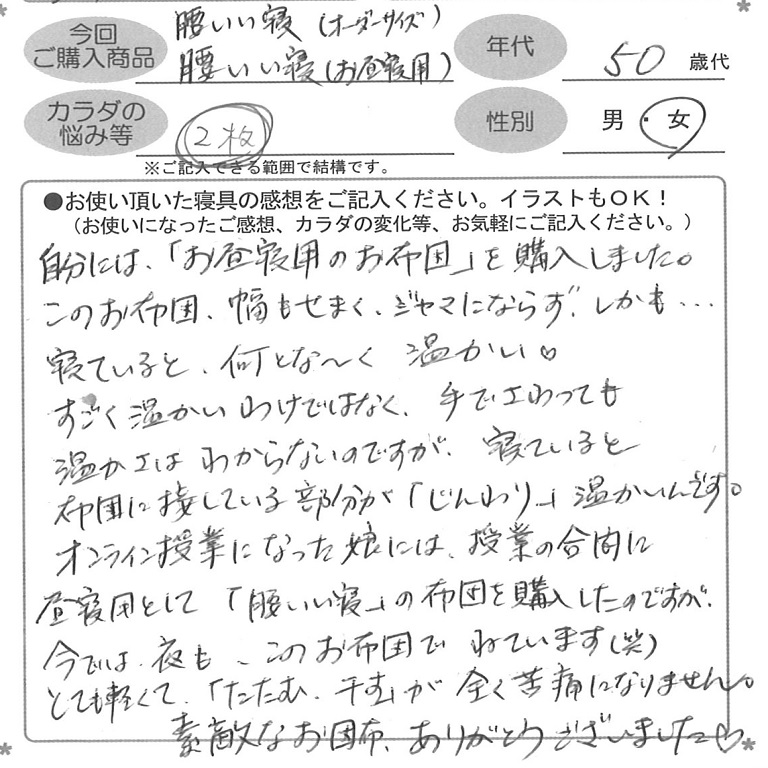 今回
ご購入商品
腰いい寝(オーダーサイズ)
腰いい寝(お昼寝用)
年代
50 歳代
カラダの
悩み等
2枚
性別
男・女
※ご記入できる範囲で結構です。
●お使い頂いた寝具の感想をご記入ください。イラストもOK!
(お使いになったご感想、カラダの変化等、お気軽にご記入ください。)
自分には、「お昼寝用のお布団」を購入しました。
このお布団、幅もせまく、ジャマにならず、しかも・・・
寝ていると、何とな〜く 温かい♡
すごく温かいわけではなく、手でさわっても
温かさはわからないのですが、寝ていると
布団に接している部分が「じんわり」温かいんです。
オンライン授業になった娘には、授業の合間に
昼寝用として「腰いい寝」の布団を購入したのですが、
今では、夜も、このお布団でねています(笑)
とても軽くて、「たたむ、干す」が全く苦痛になりません。
素敵なお団布、ありがとうございました♡